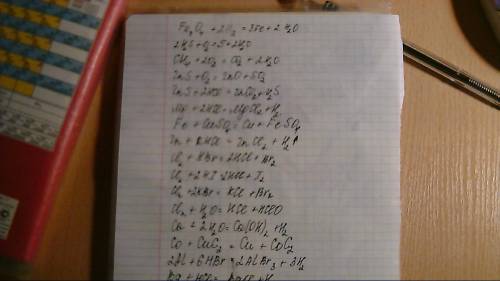 Fe₃O₄ + 2O₂ = 3Fe + 2H₂O
2H₂S + O₂ = S + 2H₂O
CH₄ + 2O₂ = O₂ + 2H₂O
ZnS + O₂ = ZnO + SO₂
ZnS + 2HCl = ZnCl₂ + H₂S
Mg + 2HCl = MgCl₂ + H₂
Fe + CuSO₄ = Cu + FeSO₄
Zn + 2HCl = ZnCl₂ + H₂↑
Cl₂ + HBr = 2HCl + Br₂
Cl₂ + 2HI = 2HCl + I₂
Cl₂ + 2KBr = KCl + Br₂
Cl₂ + H₂O = HCl + HClO
Ca + 2H₂O = Ca(OH)₂ + H₂
Co + CuCl₂ = Cu + CoCl₂
2Al + 6HBr = 2AlBr₃ + 3H₂